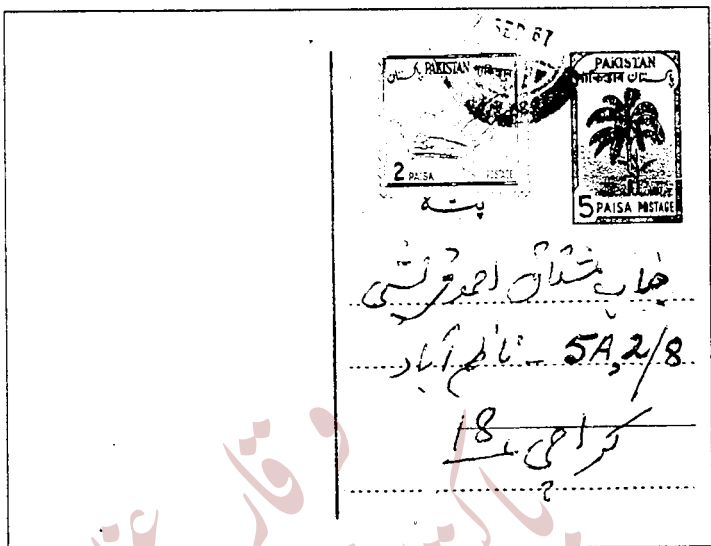 SEP 67
PAKISTAN پاکستان পাকিস্তান
2 PAISA POSTAGE
PAKISTAN
পাকিস্তান پاکستان
5 PAISA POSTAGE
پتہ
جناب مشتاق احمد قریشی
5A,2/8 - ناظم آباد
کراچی 18